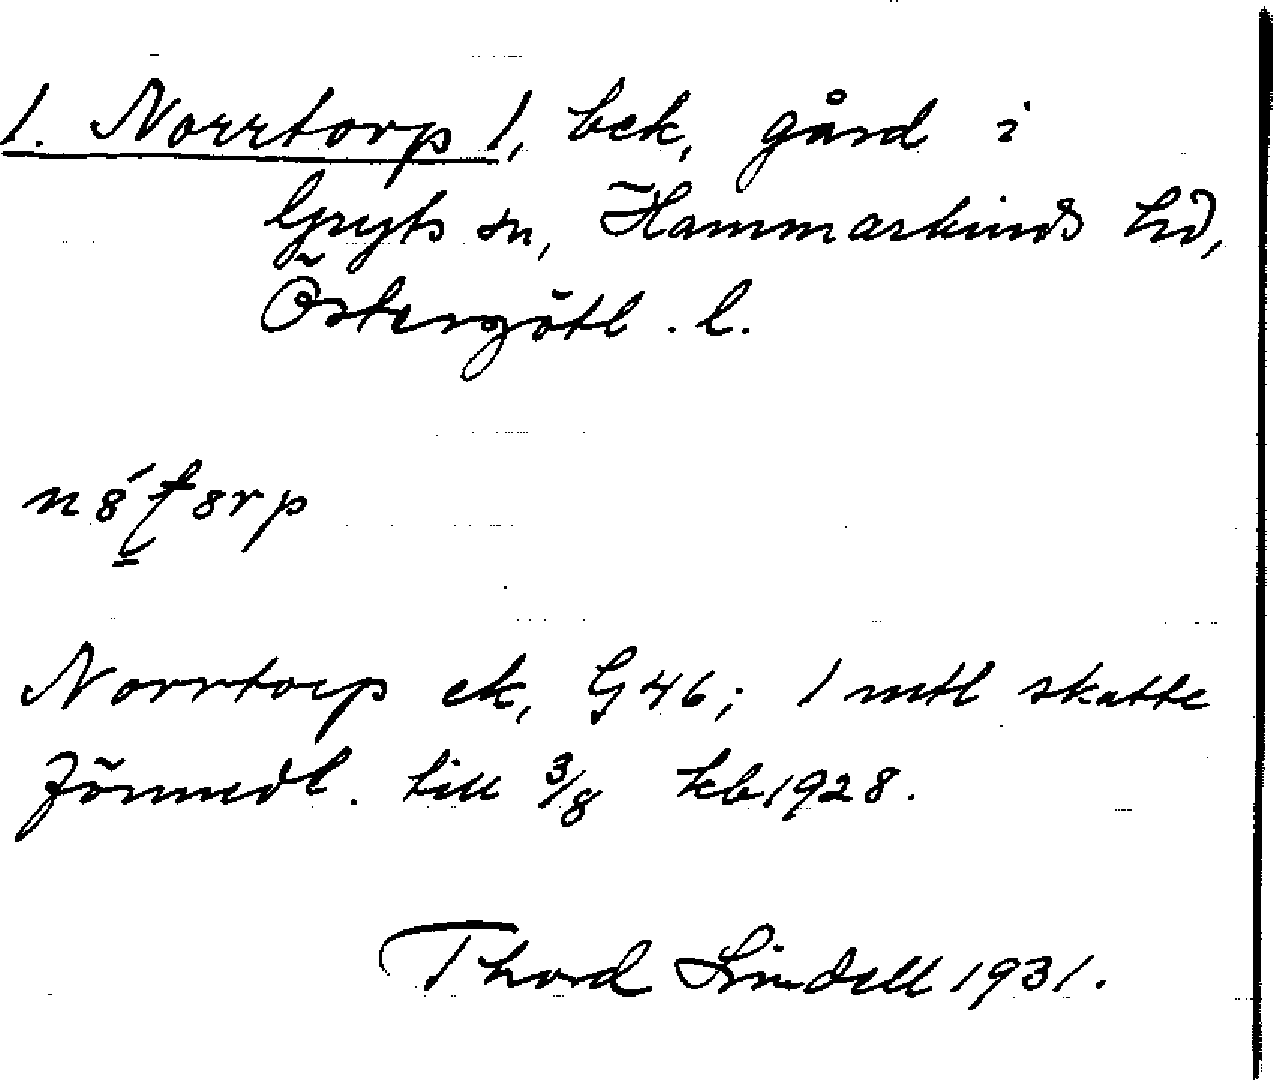 1. Norrtorp 1, bek, gård i
Gryts sn, Hammarkinds hd,
Östergötl. l.
Norrtorp ek, G46; 1 mtl skatte
förmedl. till 3/8 kb 1928.
Thord Lindell 1931.